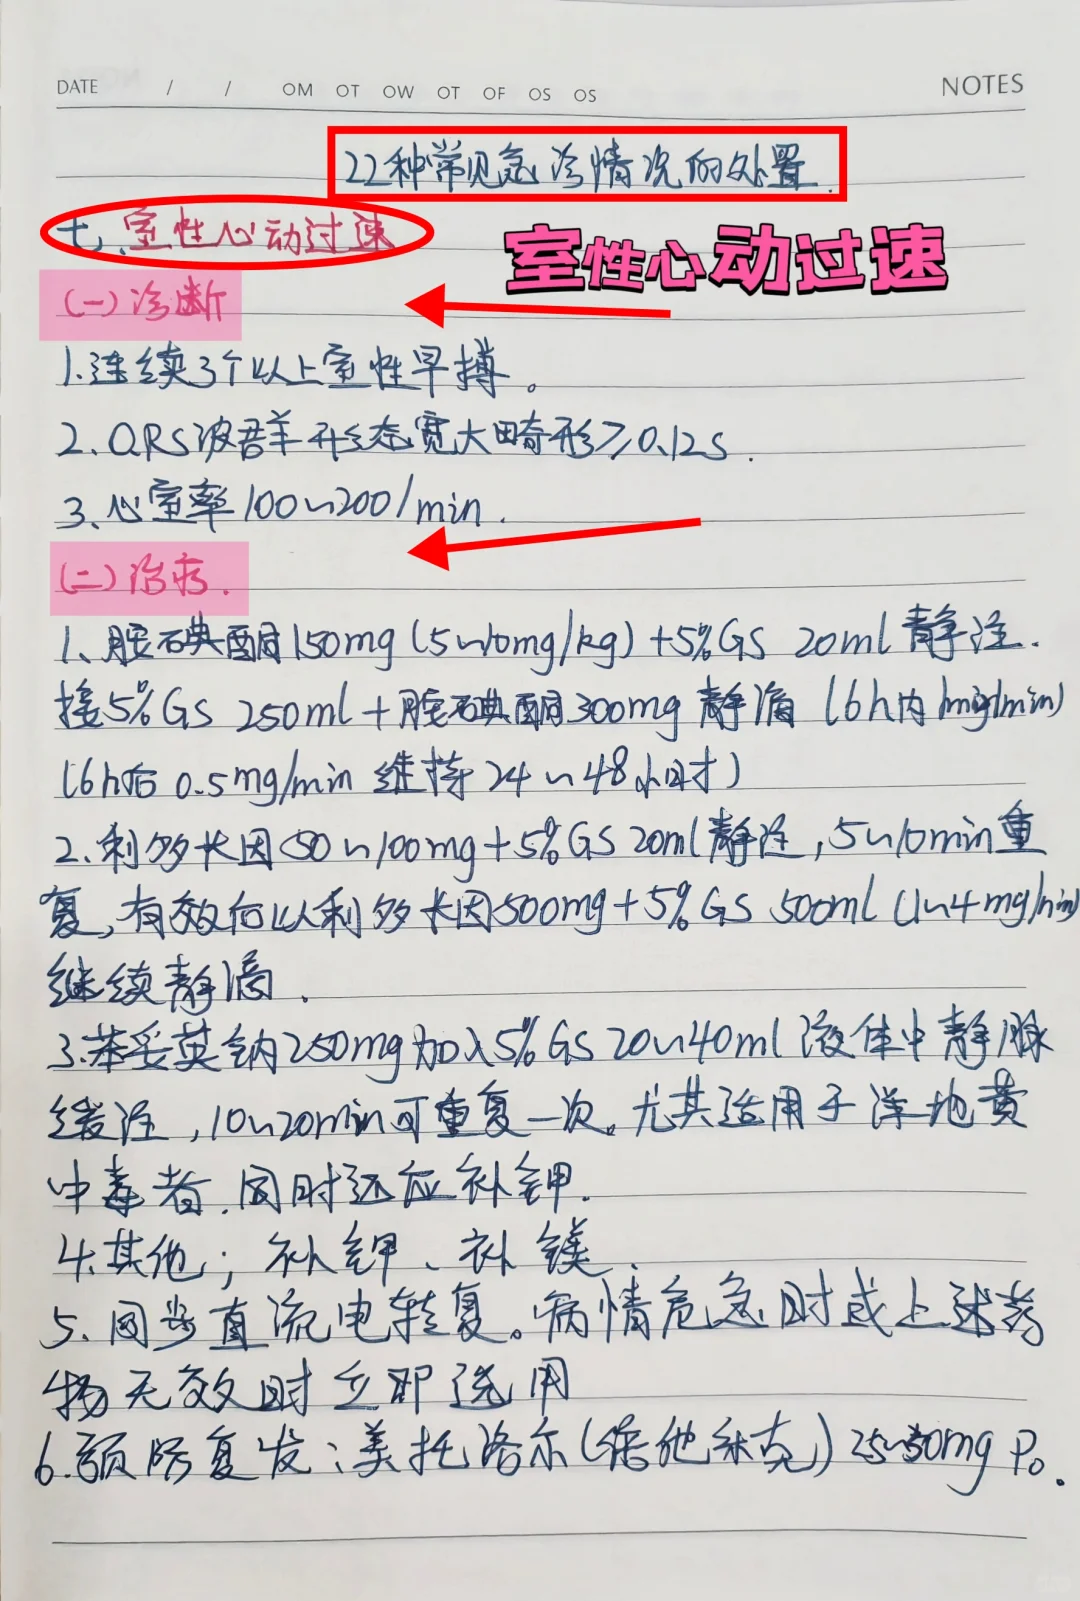 DATE / / OM OT OW OT OF OS OS NOTES
22种常见急诊情况的处置.
七、室性心动过速
室性心动过速
(一)诊断
1.连续3个以上室性早搏。
2.QRS波群形态宽大畸形≥0.12s.
3.心室率100~200/min.
(二)治疗.
1、胺碘酮150mg(5~10mg/kg)+5%GS 20ml静注.
接5%GS 250ml+胺碘酮300mg静滴(6h内1mg/min)
(6h后0.5mg/min 维持24~48小时)
2.利多卡因50~100mg+5%GS 20ml静注,5~10min重
复,有效后以利多卡因500mg+5%GS 500ml(1~4mg/min)
继续静滴.
3.苯妥英钠250mg加入5%GS 20~40ml液体中静脉
缓注,10~20min可重复一次。尤其适用于洋地黄
中毒者.同时还应补钾.
4.其他;补钾、补镁.
5.同步直流电转复。病情危急时或上述药
物无效时立即选用
6.预防复发:美托洛尔(倍他乐克)25~50mg Po.